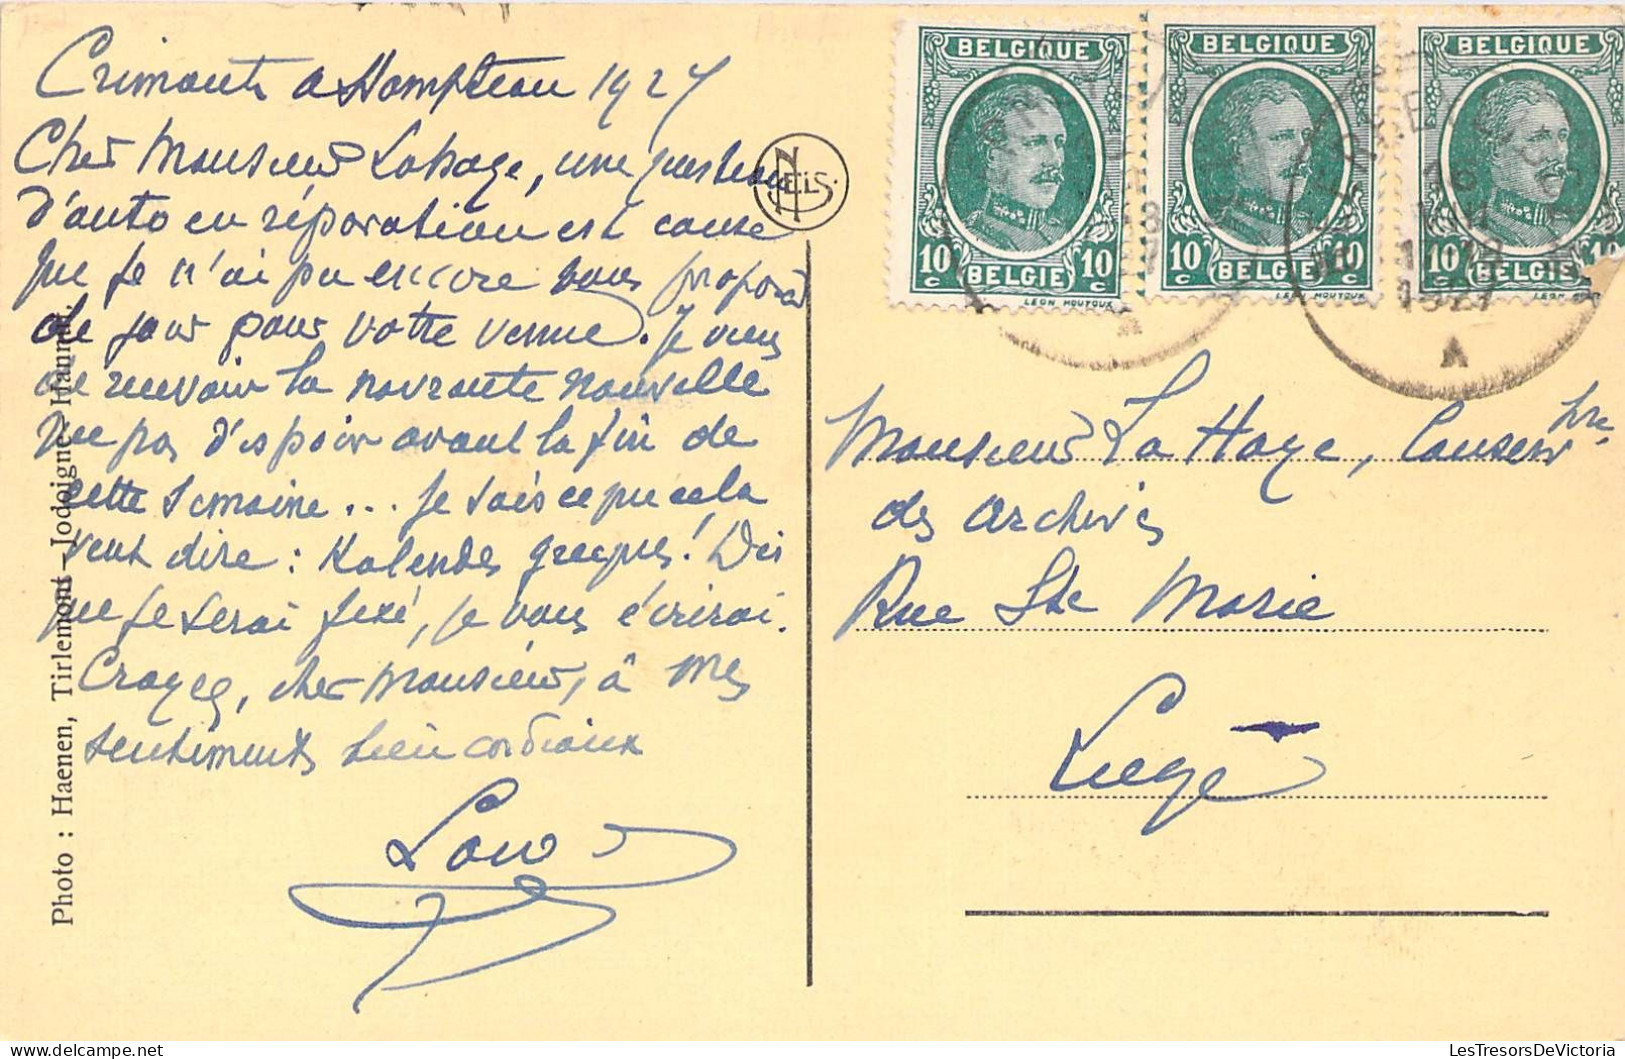 1927
Cher Monsieur Lahaye, une question
d'auto en réparation est cause
que je n'ai pu encore vous proposer
de jour pour votre venue. Je viens
de recevoir la navrante nouvelle
que pas d'espoir avant la fin de
cette semaine... Je sais ce que cela
veut dire : Kalendes grecques! Dès
que je serai fixé, je vous écrirai.
Croyez, cher Monsieur, à mes
sentiments bien cordiaux
NELS.
Photo : Haenen, Tirlemont - Jodoigne - Hannut.
BELGIQUE BELGIQUE BELGIQUE
10 c BELGIE 10 c 10 c BELGIE 10 c 10 c BELGIE
LÉON HOUYOUX LÉON HOUYOUX LÉON
16
1927
A A
Monsieur La Haye, Conserv
des Archives
Rue Ste Marie
Liége
LesTresorsDeVictoria.com
LesTresorsDeVictoria